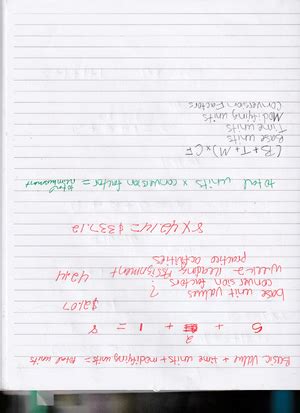 Basic Value + time units + modifying units = total units
5 + 2 + 1 = 8
$21.07
base unit values ?
conversion factors 42.14
week-2 Reading Assignment
practice activities
8 X 42.14 = $337.12
total units x conversion factor = total
(B + T + M) x CF
Base units
Time units
Modifying units
Conversion Factors